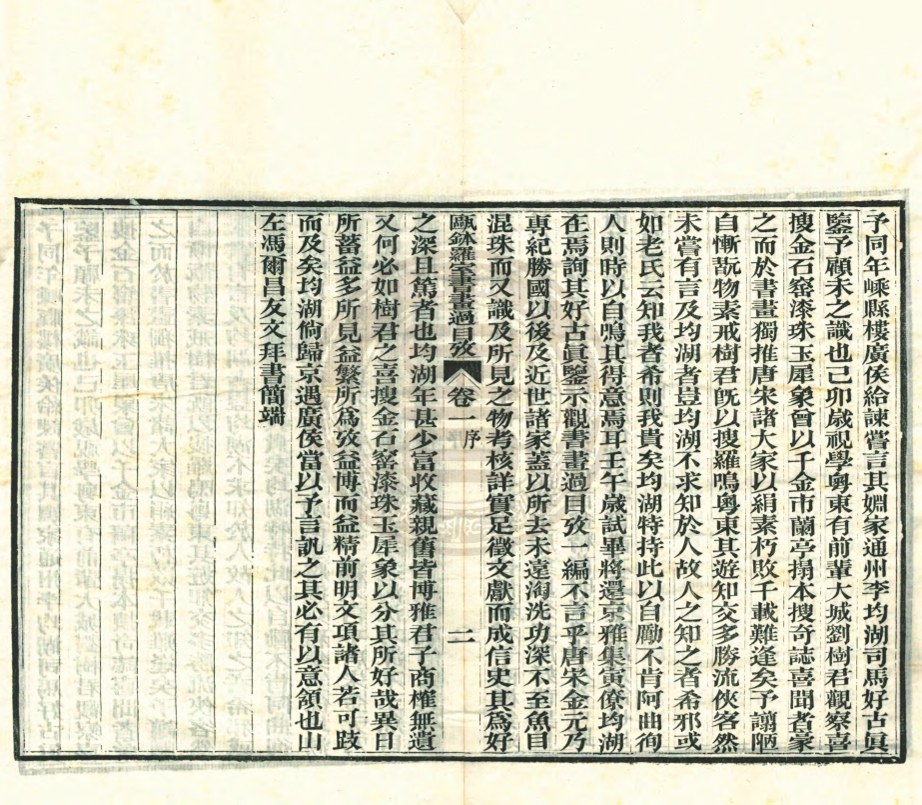 予同年嵊縣樓廣侯給諫嘗言其婣家通州李均湖司馬好古眞
鑒予顧未之識也己卯歲視學粵東有前輩大城劉樹君觀察喜
搜金石窰漆珠玉犀象曾以千金市蘭亭搨本搜奇誌喜聞者豪
之而於書畫獨推唐宋諸大家以絹素朽敗千載難逢矣予譾陋
自慚翫物素戒樹君旣以搜羅鳴粵東其遊知交多勝流俠客然
未嘗有言及均湖者豈均湖不求知於人故人之知之者希邪或
如老氏云知我者希則我貴矣均湖特持此以自勵不肯阿曲徇
人則時以自鳴其得意焉耳壬午歲試畢將還京雅集寅僚均湖
在焉詢其好古眞鑒示觀書畫過目攷一編不言乎唐宋金元乃
專紀勝國以後及近世諸家蓋以所去未遠淘洗功深不至魚目
混珠而又識及所見之物考核詳實足徵文獻而成信史其爲好
甌鉢羅室書畫過目攷 卷一 序 二
之深且篤者也均湖年甚少富收藏親舊皆博雅君子商榷無遺
又何必如樹君之喜搜金石窰漆珠玉犀象以分其所好哉異日
所蓄益多所見益繁所爲攷益博而益精前明文項諸人若可跂
而及矣均湖倘歸京遇廣侯當以予言訊之其必有以意領也山
左馮爾昌友文拜書簡端